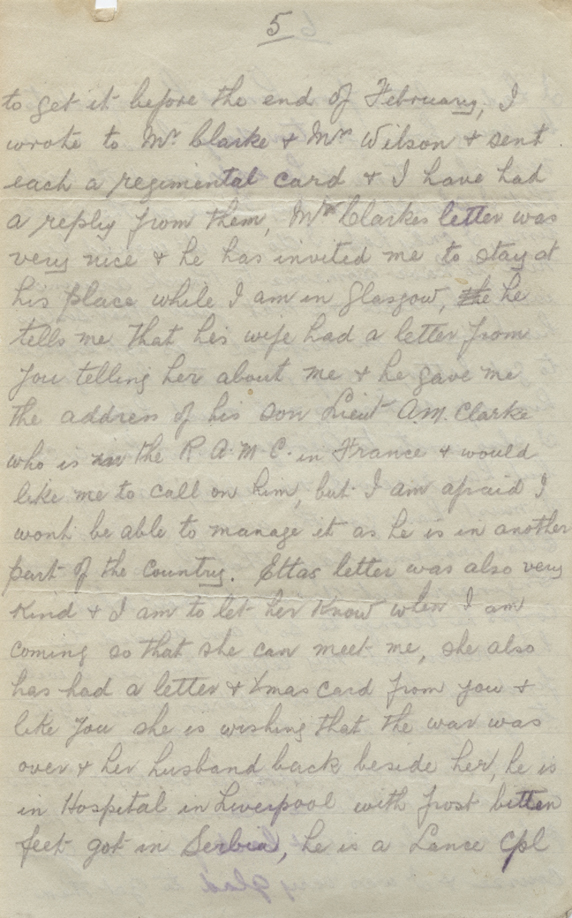 5
to get it before the end of February, I
wrote to Mr. Clarke & Mrs Wilson & sent
each a regimental card & I have had
a reply from them, Mr Clarkes letter was
very nice & he has invited me to stay at
his place while I am in Glasgow, he
tells me that his wife had a letter from
you telling her about me & he gave me
the address of his son Lieut A.M. Clarke
who is in the R.A.M.C. in France & would
like me to call on him, but I am afraid I
wont be able to manage it as he is in another
part of the country. Ettas letter was also very
kind & I am to let her know when I am
coming so that she can meet me, she also
has had a letter & Xmas card from you &
like you she is wishing that the war was
over & her husband back beside her, he is
in Hospital in Liverpool with frost bitten
feet got in Serbia, he is a Lance Cpl